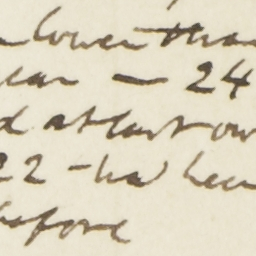 lower than
— 24
at last ow
22 - had been
before